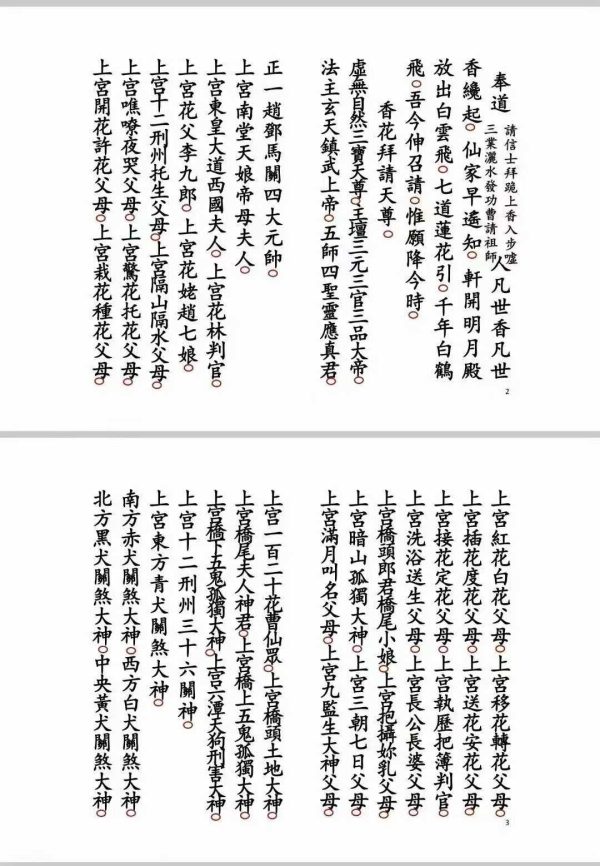 奉道
請信士拜跪上香入步噓
三業灑水發功曹請祖師
人凡世香凡世
香纔起。仙家早遙知。軒開明月殿
放出白雲飛。七道蓮花引。千年白鶴
飛。吾今伸召請。惟願降今時。
香花拜請天尊。
虛無自然三寶天尊。王壇三元三官三品大帝。
法主玄天鎮武上帝。五師四聖靈應真君。
正一趙鄧馬關四大元帥。
上宮南堂天娘帝母夫人。
上宮東皇大道西國夫人。上宮花林判官。
上宮花父李九郎。上宮花姥趙七娘。
上宮十二刑州托生父母。上宮隔山隔水父母。
上宮噍嘹夜哭父母。上宮驚花托花父母。
上宮開花許花父母。上宮栽花種花父母。
2
上宮紅花白花父母。上宮移花轉花父母。
上宮插花度花父母。上宮送花安花父母。
上宮接花定花父母。上宮執歷把簿判官。
上宮洗浴送生父母。上宮長公長婆父母。
上宮橋頭郎君橋尾小娘。上宮抱攝妳乳父母。
上宮暗山孤獨大神。上宮三朝七日父母。
上宮滿月叫名父母。上宮九監生大神父母。
上宮一百二十花曹仙眾。上宮橋頭土地大神。
上宮橋尾夫人神君。上宮橋上五鬼孤獨大神。
上宮橋下五鬼孤獨大神。上宮六潭天狗刑害大神。
上宮十二刑州三十六關神。
上宮東方青犬關煞大神。
南方赤犬關煞大神。西方白犬關煞大神。
北方黑犬關煞大神。中央黃犬關煞大神。
3